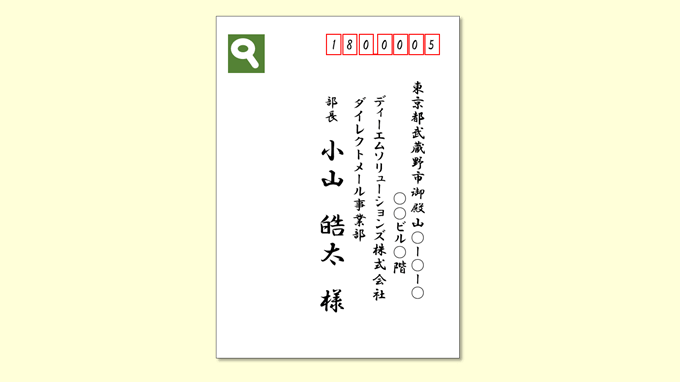 1800005
東京都武蔵野市御殿山〇ー〇ー〇
〇〇ビル〇階
ディーエムソリューションズ株式会社
ダイレクトメール事業部
部長 小山 皓太 様